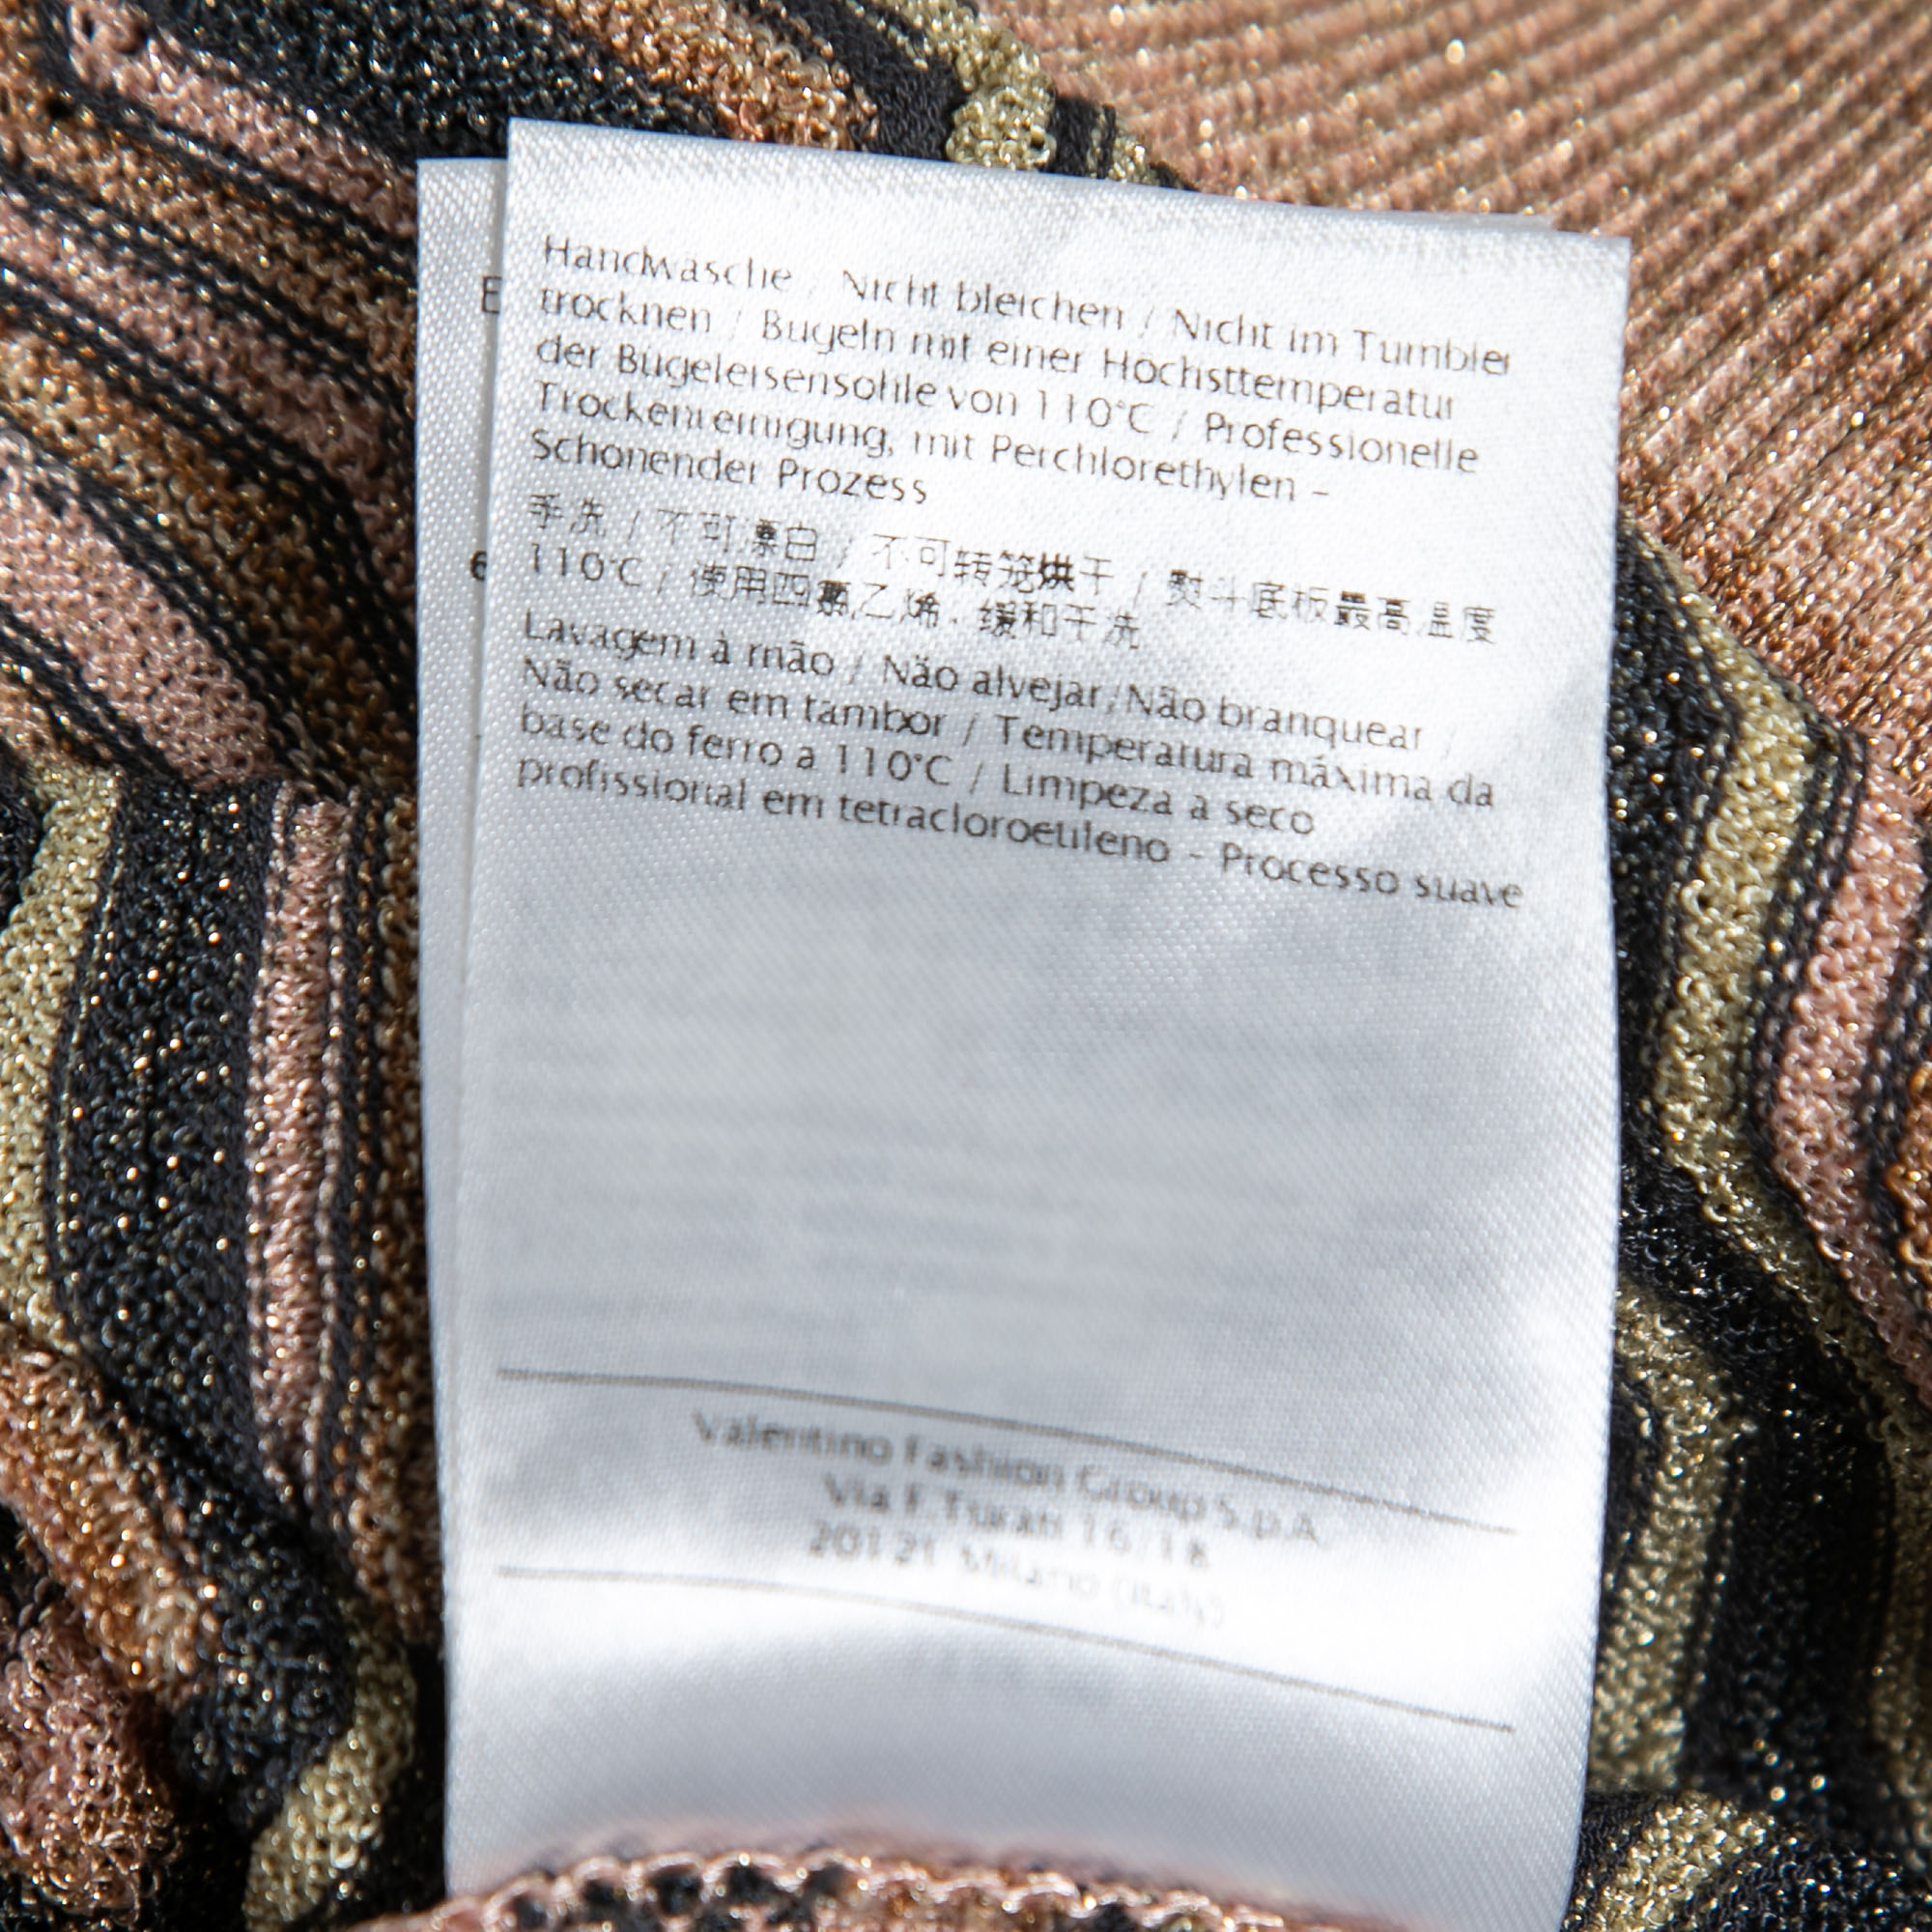 Handwäsche / Nicht bleichen / Nicht im Tumbler
trocknen / Bügeln mit einer Höchsttemperatur
der Bügeleisensohle von 110°C / Professionelle
Trockenreinigung, mit Perchlorethylen -
Schonender Prozess
手洗 / 不可漂白 / 不可转笼烘干 / 熨斗底板最高温度
110°C / 使用四氯乙烯·缓和干洗
Lavagem à mão / Não alvejar/Não branquear /
Não secar em tambor / Temperatura máxima da
base do ferro a 110°C / Limpeza a seco
profissional em tetracloroetileno - Processo suave
Valentino Fashion Group S.p.A.
Via F. Turati 16/18
20121 Milano (Italy)